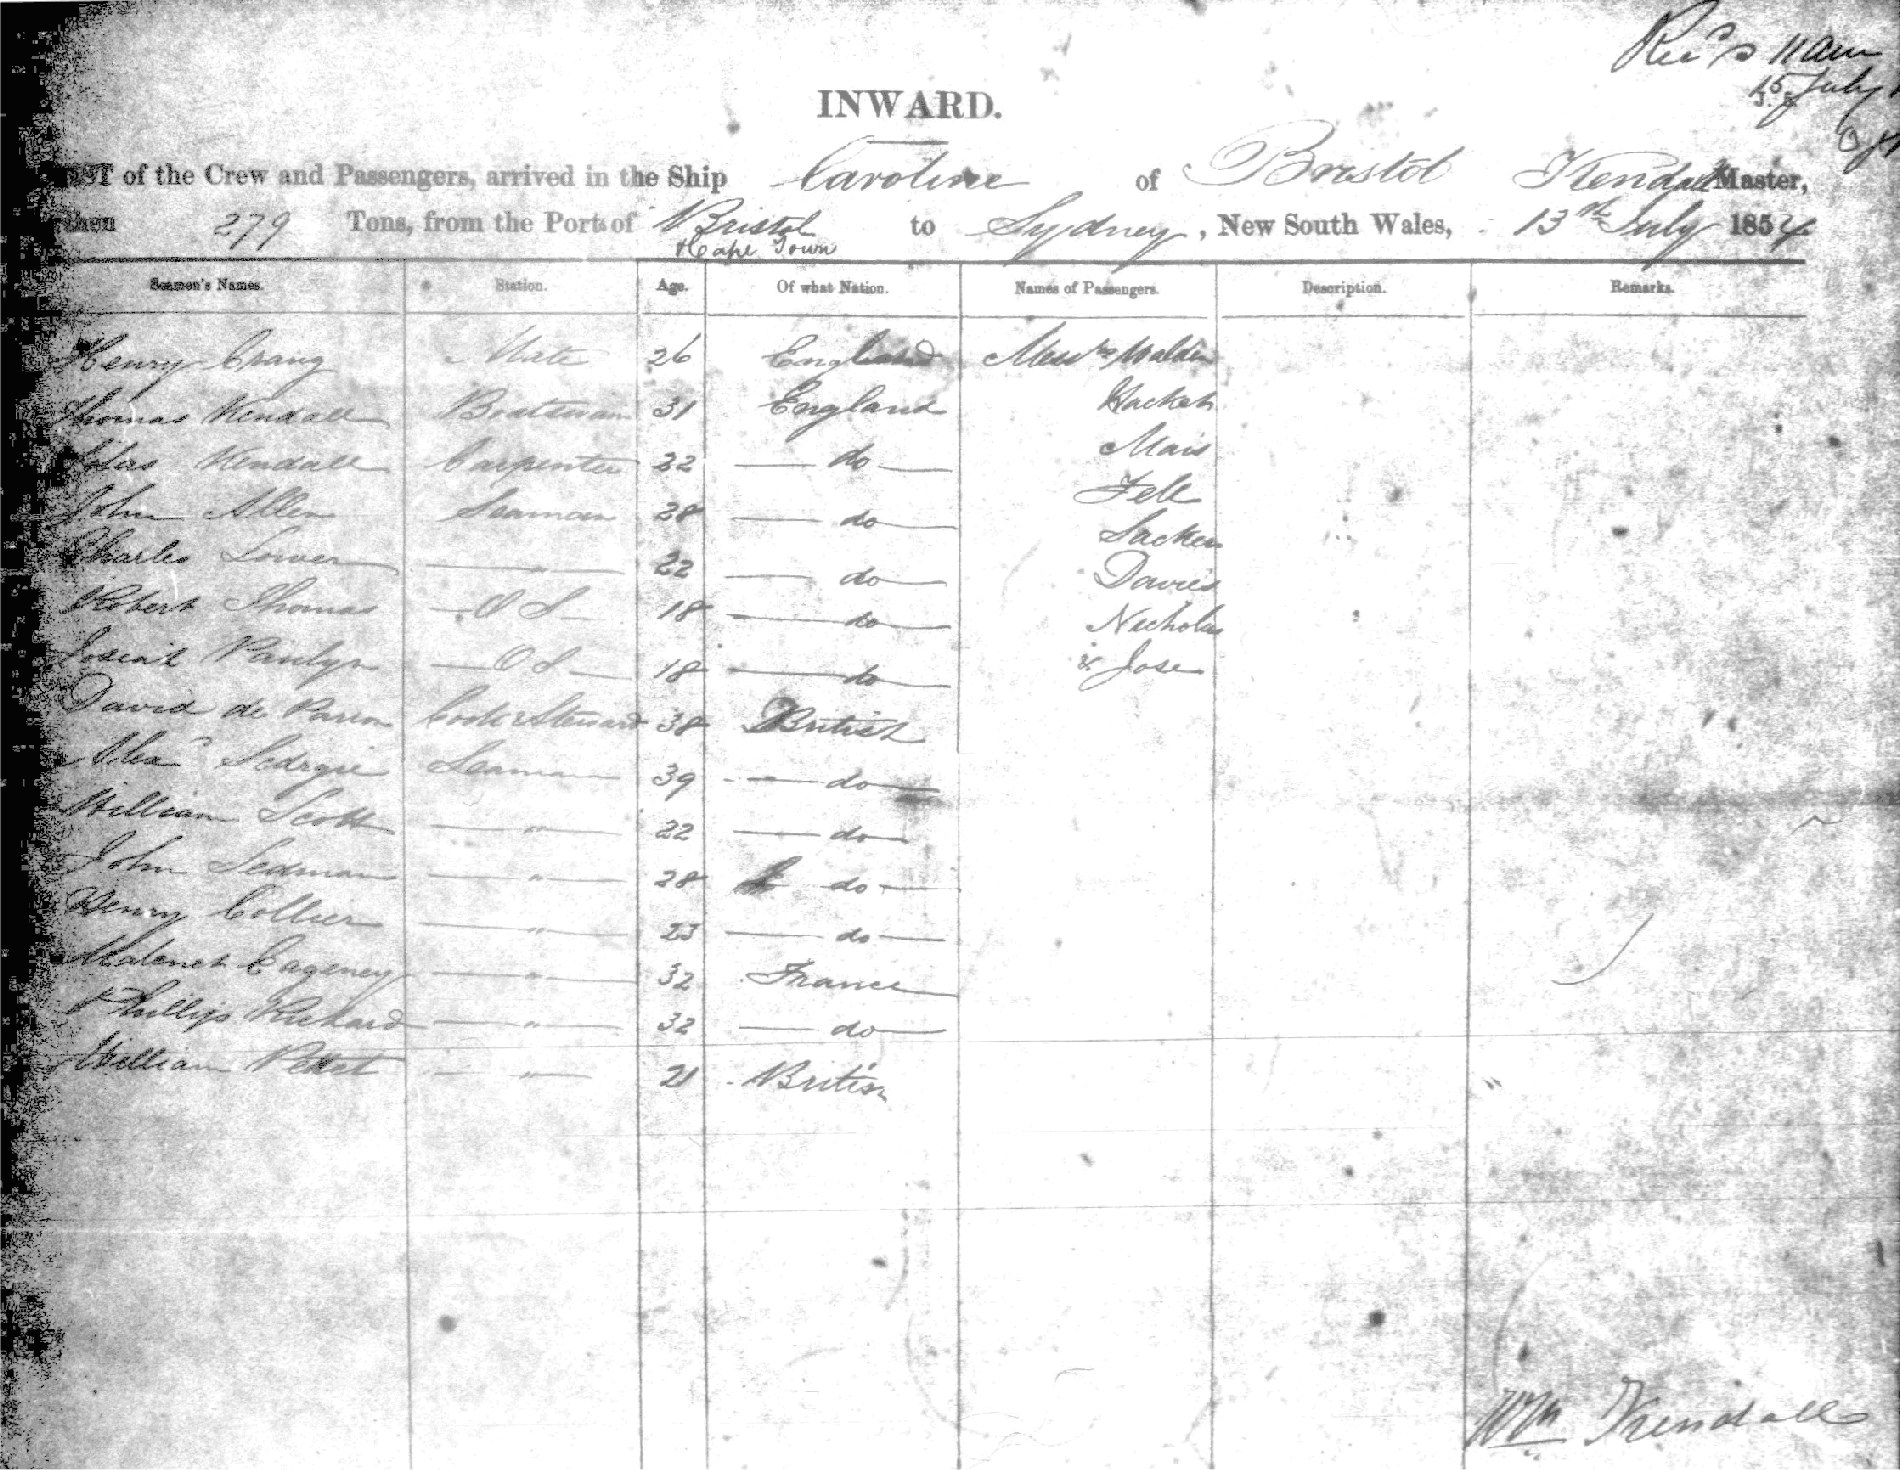 Rec'd 11 am
15 July
INWARD.
LIST of the Crew and Passengers, arrived in the Ship Caroline of Bristol Kendall Master,
Burthen 279 Tons, from the Port of Bristol to Sydney, New South Wales, 13th July 1854
& Cape Town
Seamen's Names. Station. Age. Of what Nation. Names of Passengers. Description. Remarks.
Henry Craug Mate 26 England Messrs Walden
Thomas Kendall Boatswain 31 England Hacket
Kendall Carpenter 22 — do — Mais
John Allen Seaman 28 — do — Fell
Charles Lower — " — 22 — do — Sacker
Robert Thomas — O S — 18 — do — Davies
Josiah Paulyn — O S — 18 — do — Nicholas
David de Cook & Steward 38 British & Jose
Alexr Sedrgie Seaman 39 — do —
William Scott — " — 22 — do —
John Sedman — " — 28 do —
Henry Collier — " — 23 — do —
Cageney — " — 32 France
Phillips Richard — " — 32 — do —
William Pettet — " — 21 British
Wm Kendall